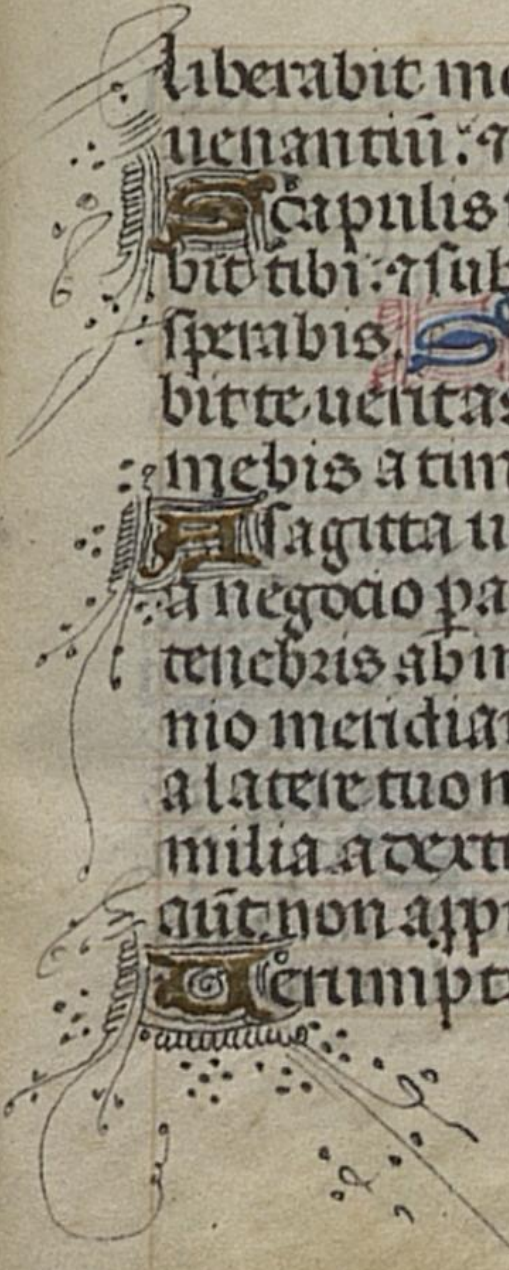 liberabit me
uenantiū: ⁊
Scapulis
bit tibi: ⁊ sub
sperabis. S
bit te ueritas
mebis a tim
A sagitta u
a negocio pa
tenebris ab in
nio meridia
a latere tuo
milia a dext
aūt non app
Uerumpt